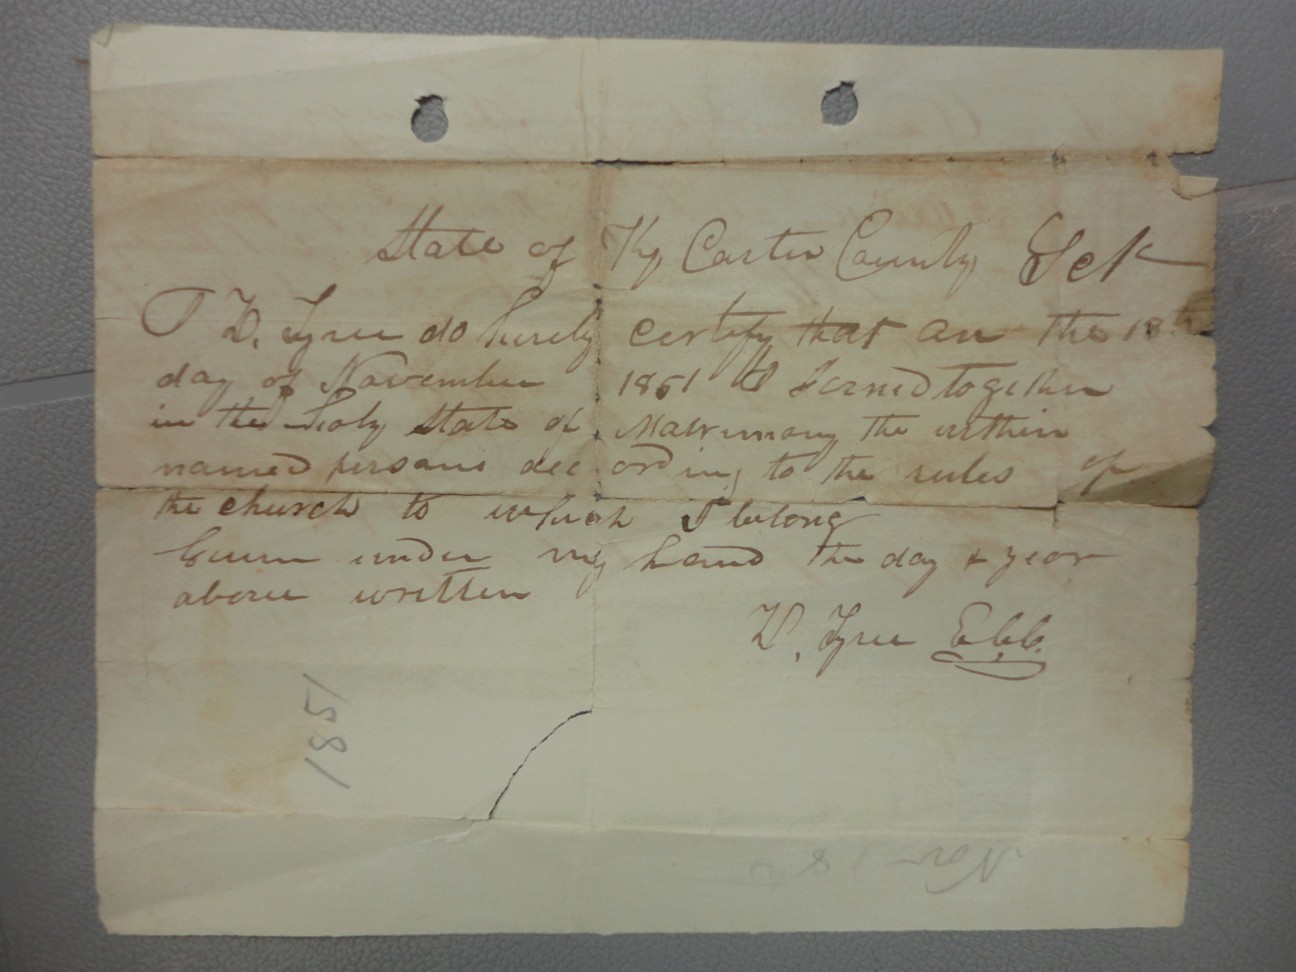 State of Ky Carter County Sct
I W. Tyree do hereby certify that on the 18th
day of November 1851 I Joined together
in the Holy State of Matrimony the within
named persons accord ing to the rules of
the church to which I belong
Given under my hand the day & year
above written
W. Tyree
1851
Nov 18